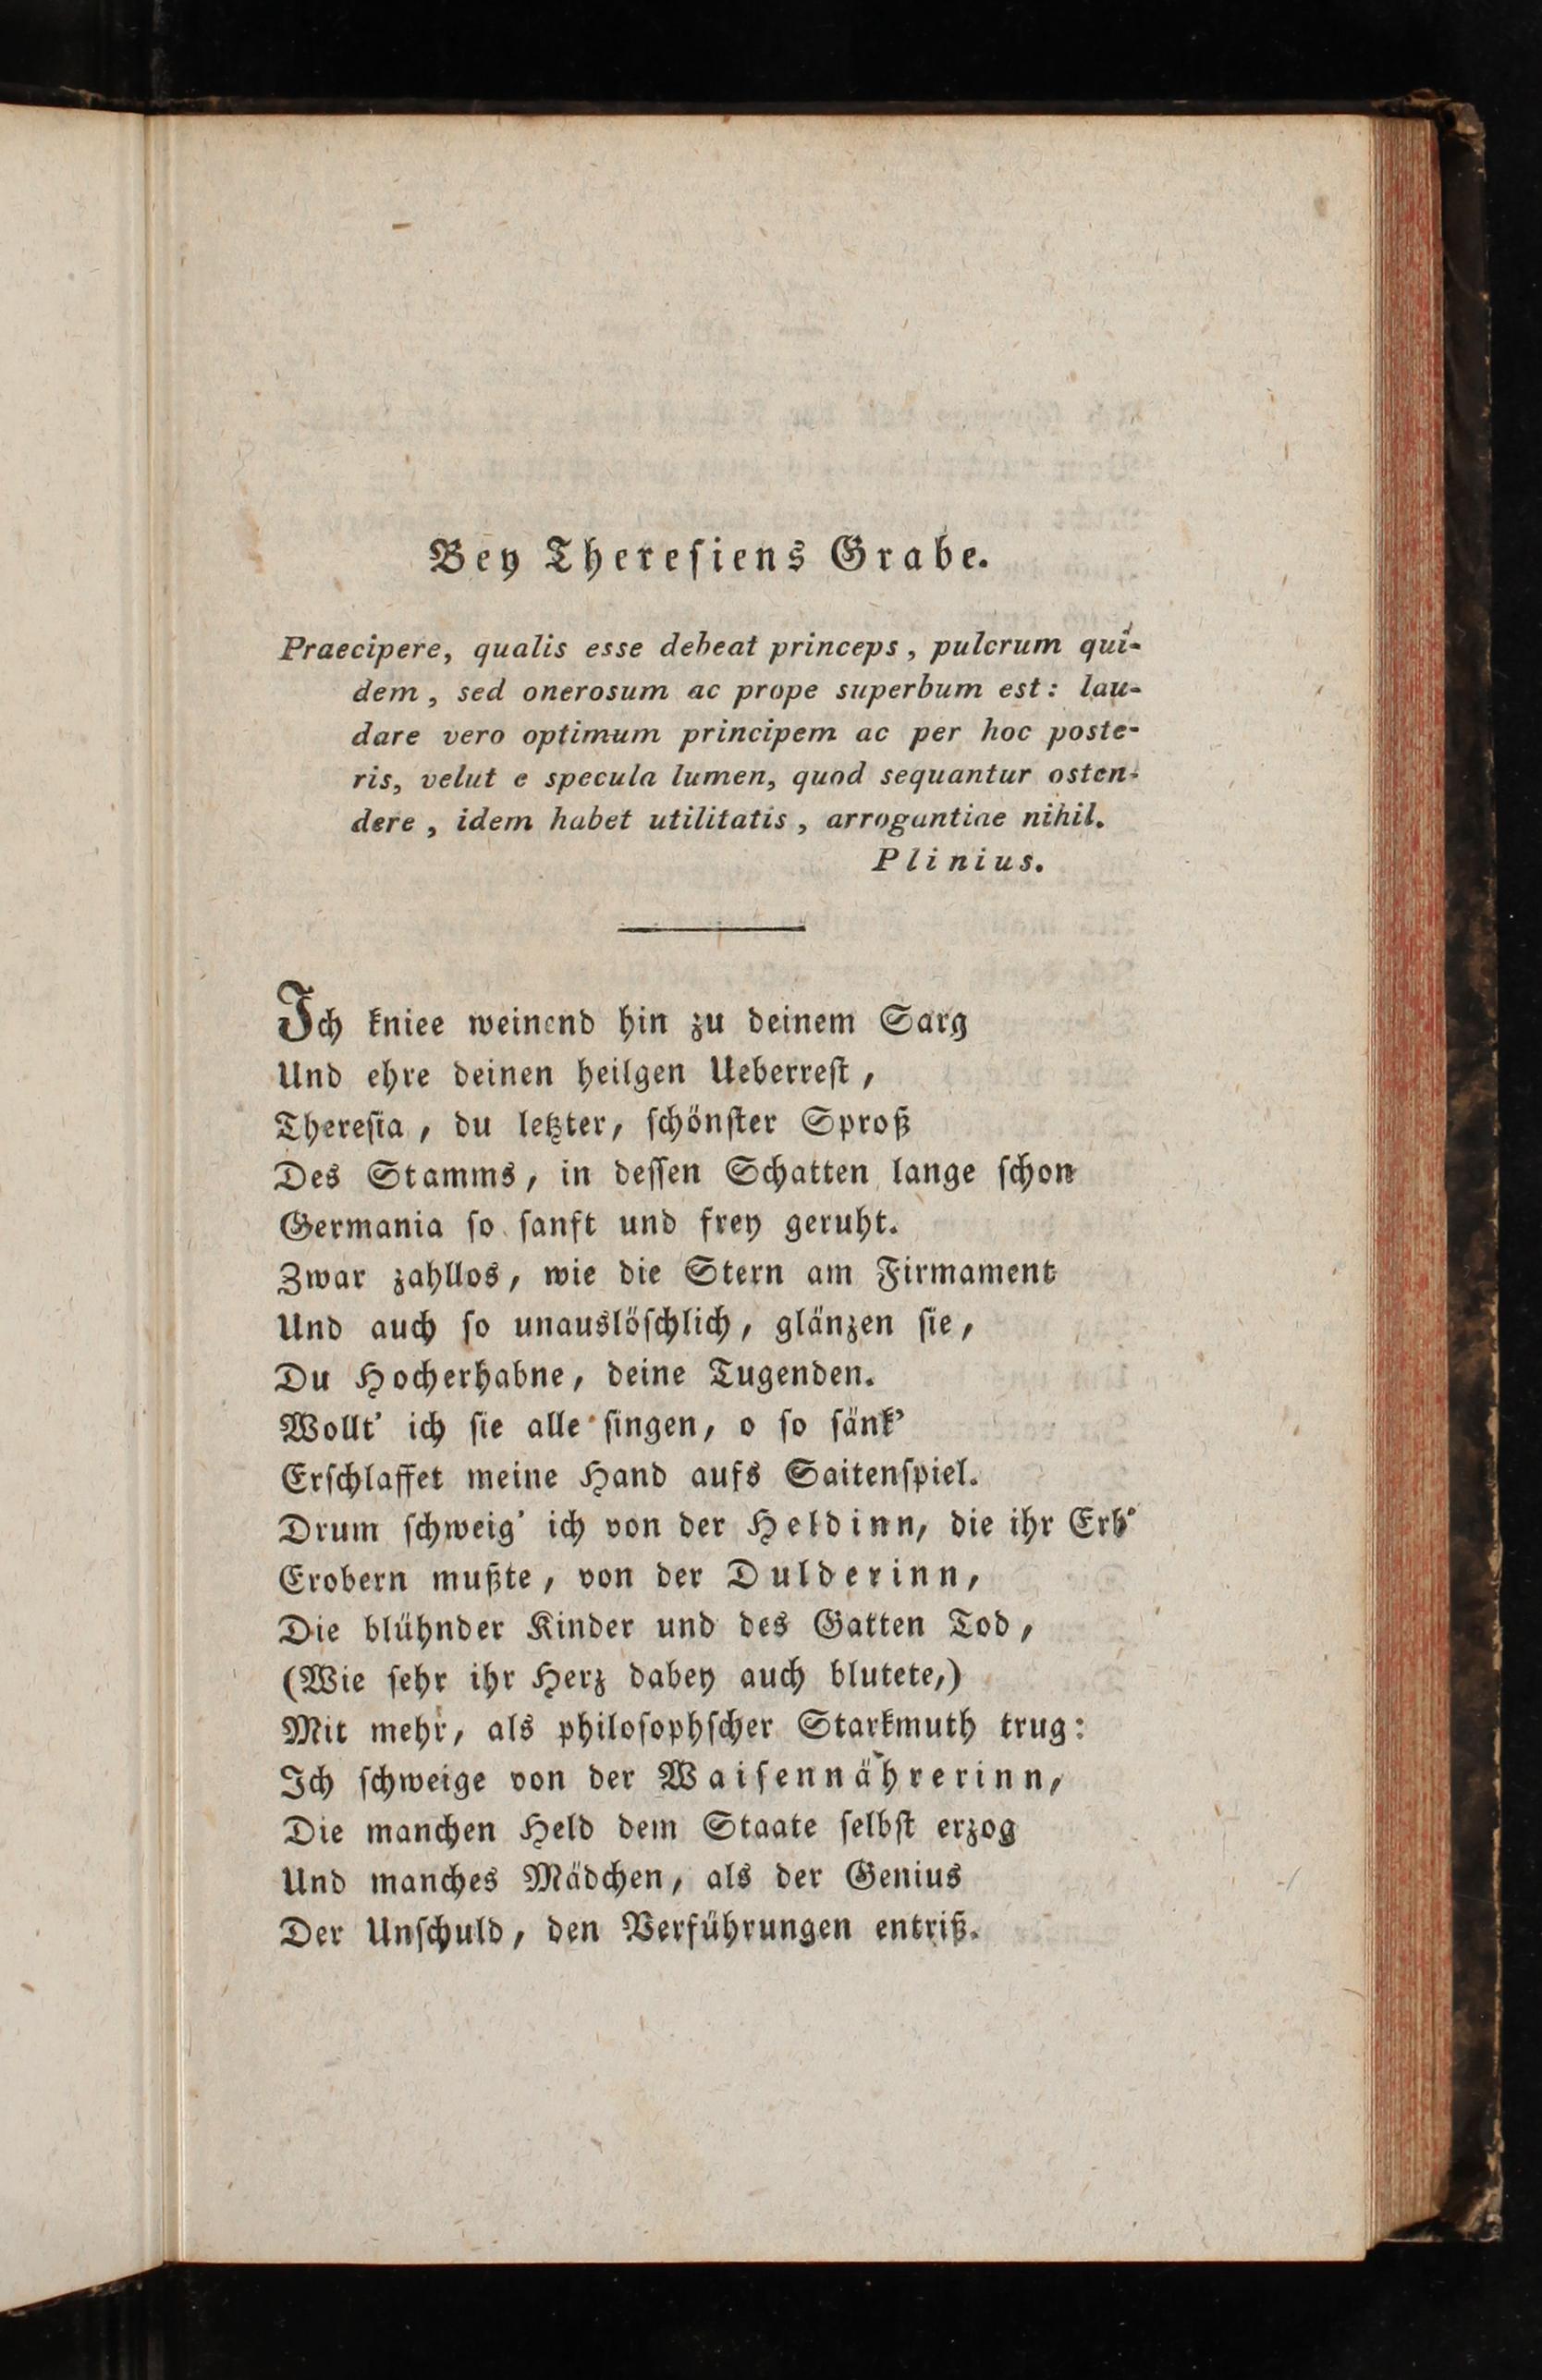 Bey Thereſiens Grabe.
Praecipere, qualis esse debeat princeps, pulcrum qui-
dem, sed onerosum ac prope superbum est: lau-
dare vero optimum principem ac per hoc poste-
ris, velut e specula lumen, quod sequantur osten-
dere, idem habet utilitatis, arrogantiae nihil.
Plinius.
Ich kniee weinend hin zu deinem Sarg
Und ehre deinen heilgen Ueberreſt,
Thereſia, du letzter, ſchönſter Sproß
Des Stamms, in deſſen Schatten lange ſchon
Germania ſo ſanft und frey geruht.
Zwar zahllos, wie die Stern am Firmament
Und auch ſo unauslöſchlich, glänzen ſie,
Du Hocherhabne, deine Tugenden.
Wollt' ich ſie alle ſingen, o ſo ſänk'
Erſchlaffet meine Hand aufs Saitenſpiel.
Drum ſchweig' ich von der Heldinn, die ihr Erb'
Erobern mußte, von der Dulderinn,
Die blühnder Kinder und des Gatten Tod,
(Wie ſehr ihr Herz dabey auch blutete,)
Mit mehr, als philoſophſcher Starkmuth trug:
Ich ſchweige von der Waiſennährerinn,
Die manchen Held dem Staate ſelbſt erzog
Und manches Mädchen, als der Genius
Der Unſchuld, den Verführungen entriß.